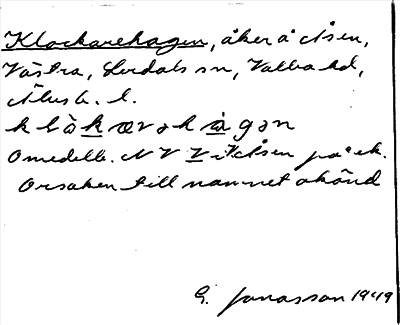 Klockarehagen, åker å Åsen,
Västra, Lerdals sn, Valbo hd,
Älvsb. l.
k l å k ar ə h à g ə n
Omedelb. NV Åsen på ek.
Orsaken till namnet okänd
G. Jonasson 1949